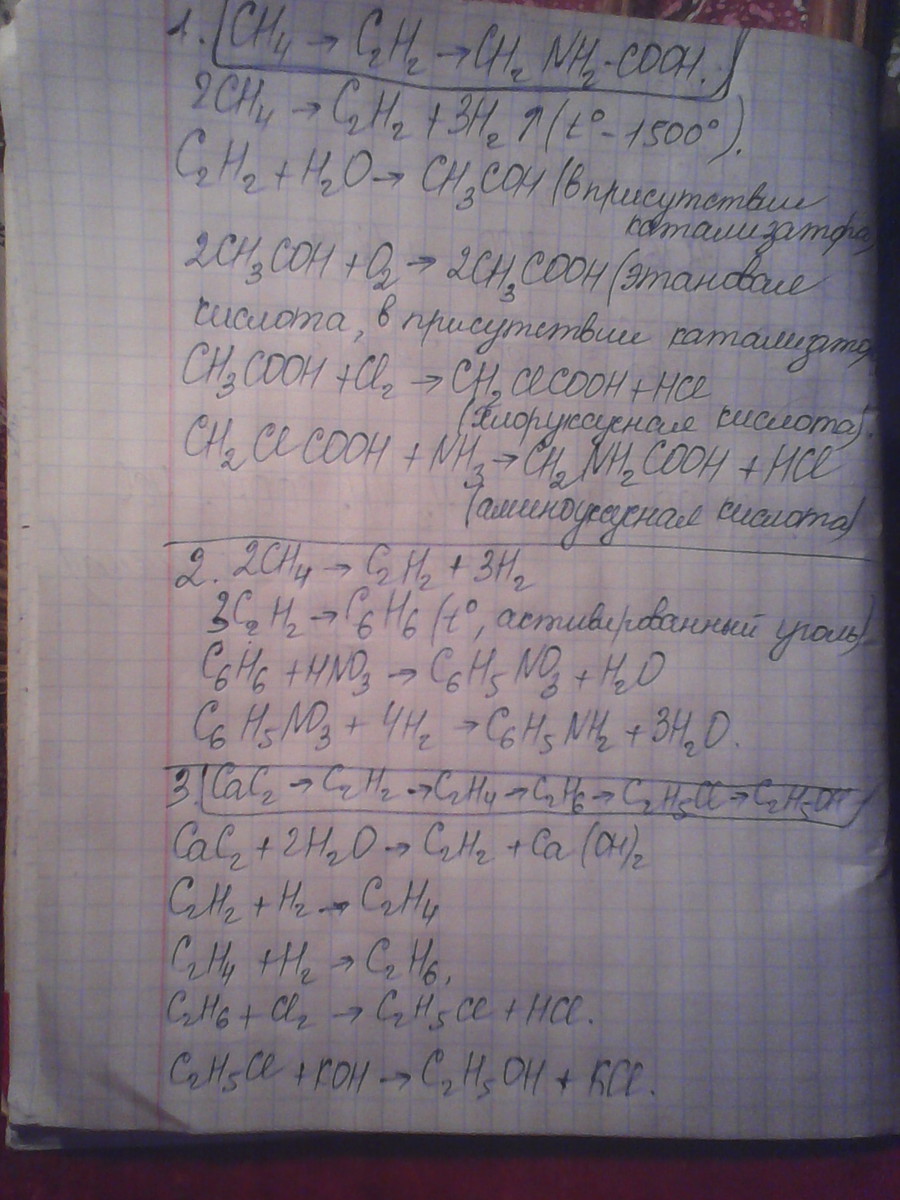 1. CH₄ → C₂H₂ → CH₂ NH₂-COOH.
2CH₄ → C₂H₂ + 3H₂ ↑ (t° - 1500°).
C₂H₂ + H₂O → CH₃COH (в присутствии
катализатора)
2CH₃COH + O₂ → 2CH₃COOH (этановая
кислота, в присутствии катализатор
CH₃COOH + Cl₂ → CH₂ClCOOH + HCl
(хлоруксусная кислота).
CH₂ClCOOH + NH₃ → CH₂NH₂COOH + HCl
(аминоуксусная кислота)
2. 2CH₄ → C₂H₂ + 3H₂
3C₂H₂ → C₆H₆ (t°, активированный уголь)
C₆H₆ + HNO₃ → C₆H₅NO₃ + H₂O
C₆H₅NO₃ + 4H₂ → C₆H₅NH₂ + 3H₂O.
3. CaC₂ → C₂H₂ → C₂H₄ → C₂H₆ → C₂H₅Cl → C₂H₅OH
CaC₂ + 2H₂O → C₂H₂ + Ca(OH)₂
C₂H₂ + H₂ → C₂H₄
C₂H₄ + H₂ → C₂H₆,
C₂H₆ + Cl₂ → C₂H₅Cl + HCl.
C₂H₅Cl + KOH → C₂H₅OH + KCl.